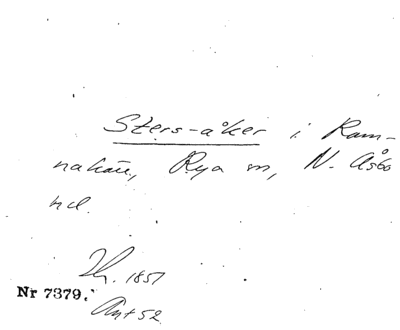 Sters-åker i Ram-
nakärr, Rya sn, N. Åsbo
hd.
Th. 1851
Nr 7379.
Ant 52